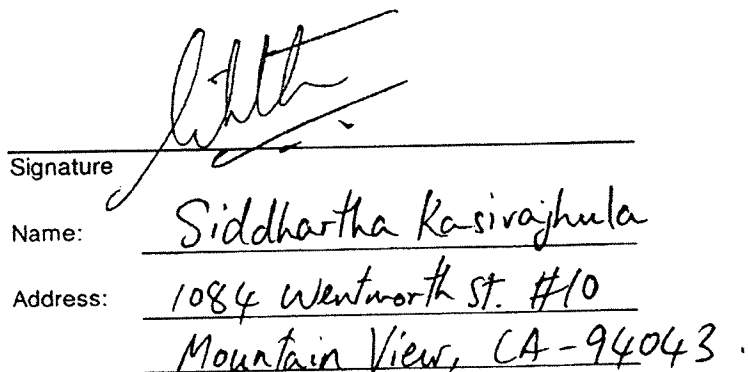 Signature
Name: Siddhartha Kasirajhula
Address: 1084 Wentworth St. #10
Mountain View, CA-94043.